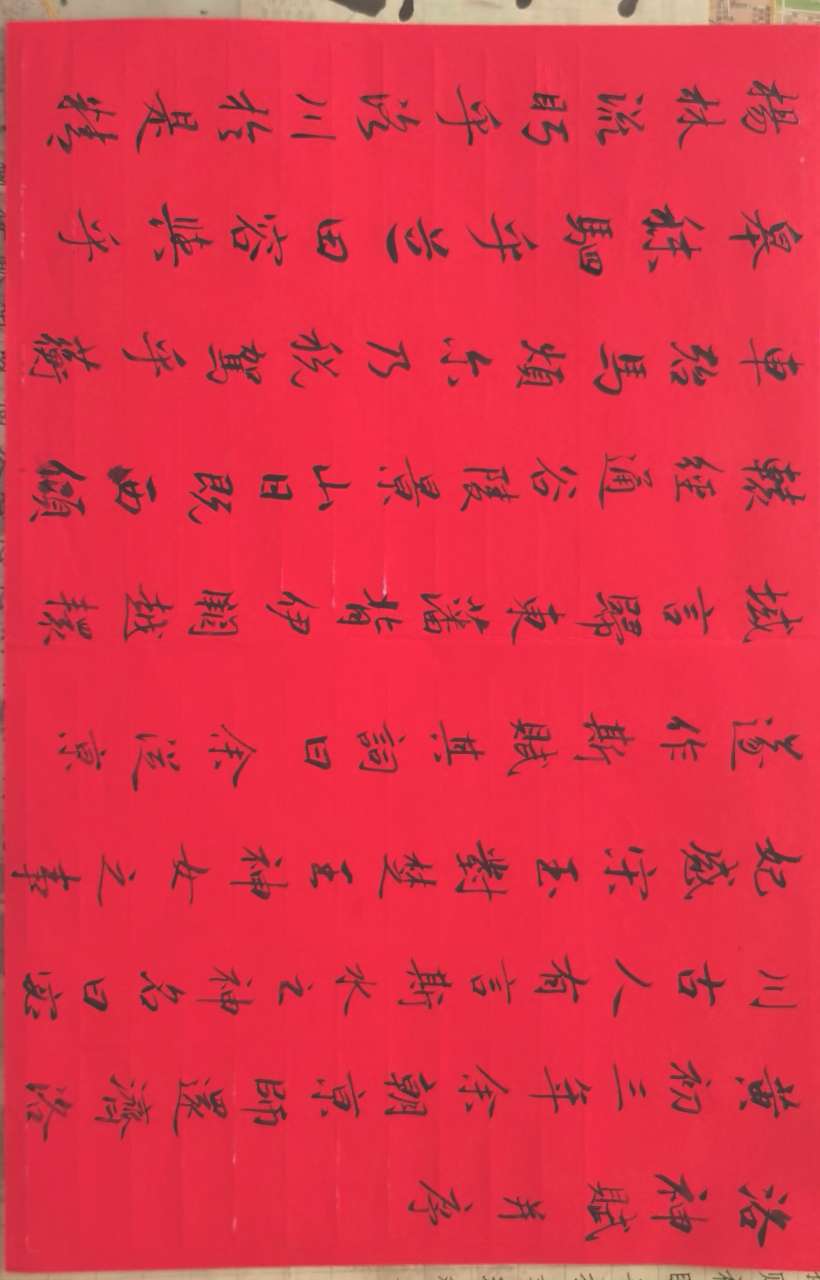 洛神賦并序
黄初三年余朝京師還濟洛
川古人有言斯水之神名曰宓
妃感宋玉對楚王神女之事
遂作斯賦其詞曰余從京
域言歸東藩背伊闕越轘
轅經通谷陵景山日既西傾
車殆馬煩尔乃税駕乎蘅
皋秣駟乎芝田容與乎
楊林流眄乎洛川於是精